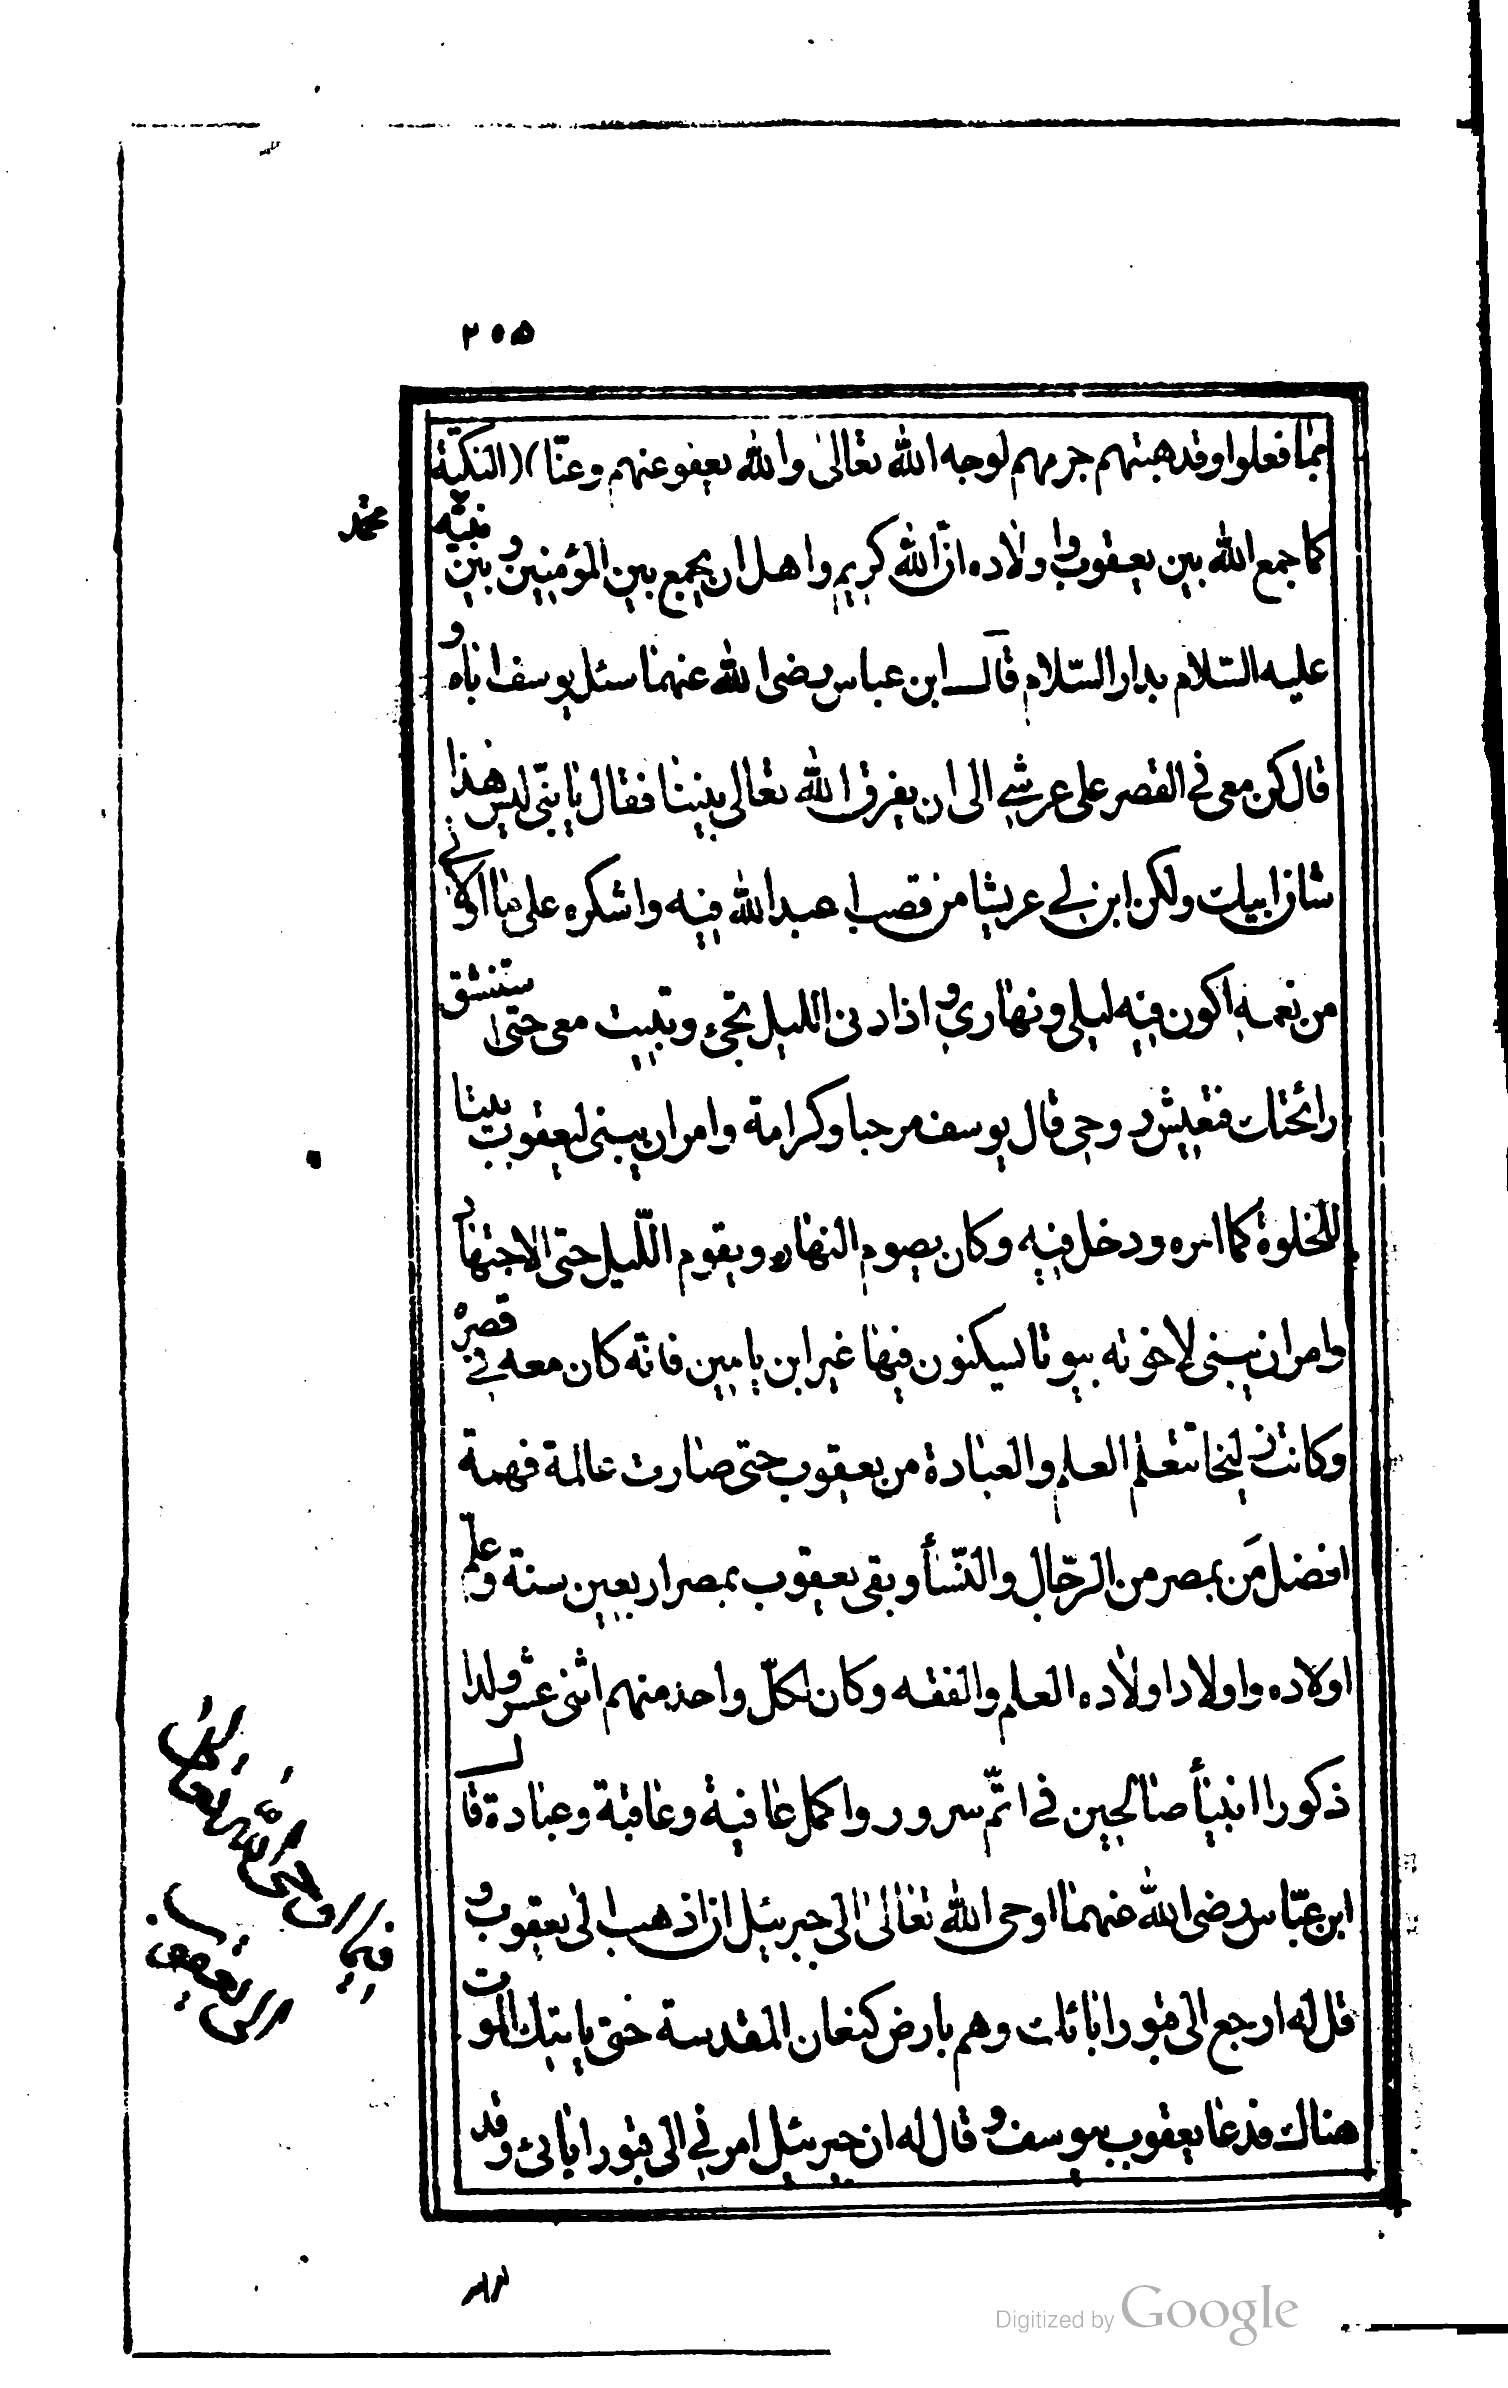 ٢٠٥
بما فعلوا وقد هبتهم جرمهم لوجه الله تعالى والله يعفو عنهم وعنّا (النكتة)
كما جمع الله بين يعقوب واولاده انّ الله كريم واهل ان يجمع بين المؤمنين وبين نبيّه
محمّد
عليه السّلام بدار السّلام قال ابن عباس رضى الله عنهما سئل يوسف اباه و
قال كن معى فى القصر على عرشي الى ان يفرق الله تعالى بيننا فقال يا بنىّ ليس هذا
شان ابيك ولكن ابن لى عريشا من قصب اعبد الله فيه واشكره على ما اولانى
من نعمه اكون فيه ليلى ونهارى و اذا دنى الليل تجىء وتبيت معى حتى استنشق
رائحتك فتعيش روحى قال يوسف مرحبا وكرامة وامر ان يبنى ليعقوب بيتا
للخلوة كما امره ودخل فيه وكان يصوم النهار ويقوم اللّيل حتى الاجتهاد
وامر ان يبنى لاخوته بيوتا ليسكنون فيها غير ابن يامين فانه كان معه فى قصره
وكانت زليخا تتعلم العلم والعبادة من يعقوب حتى صارت عالمة فهمة
افضل مَن بمصر من الرّجال والنّسأ وبقى يعقوب بمصر اربعين سنة وعلّم
اولاده واولاد اولاده العلم والفقه وكان لكلّ واحد منهم اثنى عشر ولدا
ذكورا انبيأ صالحين فى اتمّ سرور واكمل عافية وعاقبة وعبادة قال
ابن عبّاس رضى الله عنهما اوحى الله تعالى الى جبرئيل ان اذهب الى يعقوب و
قل له ارجع الى قبور ابائك وهم بارض كنعان المقدسة حتى ياتيك الموت
هناك فدعا يعقوب يوسف و قال له ان جبرئيل امرنى الى قبور ابائى وقد
الله تعالى
الى يعقوب
Digitized by Google